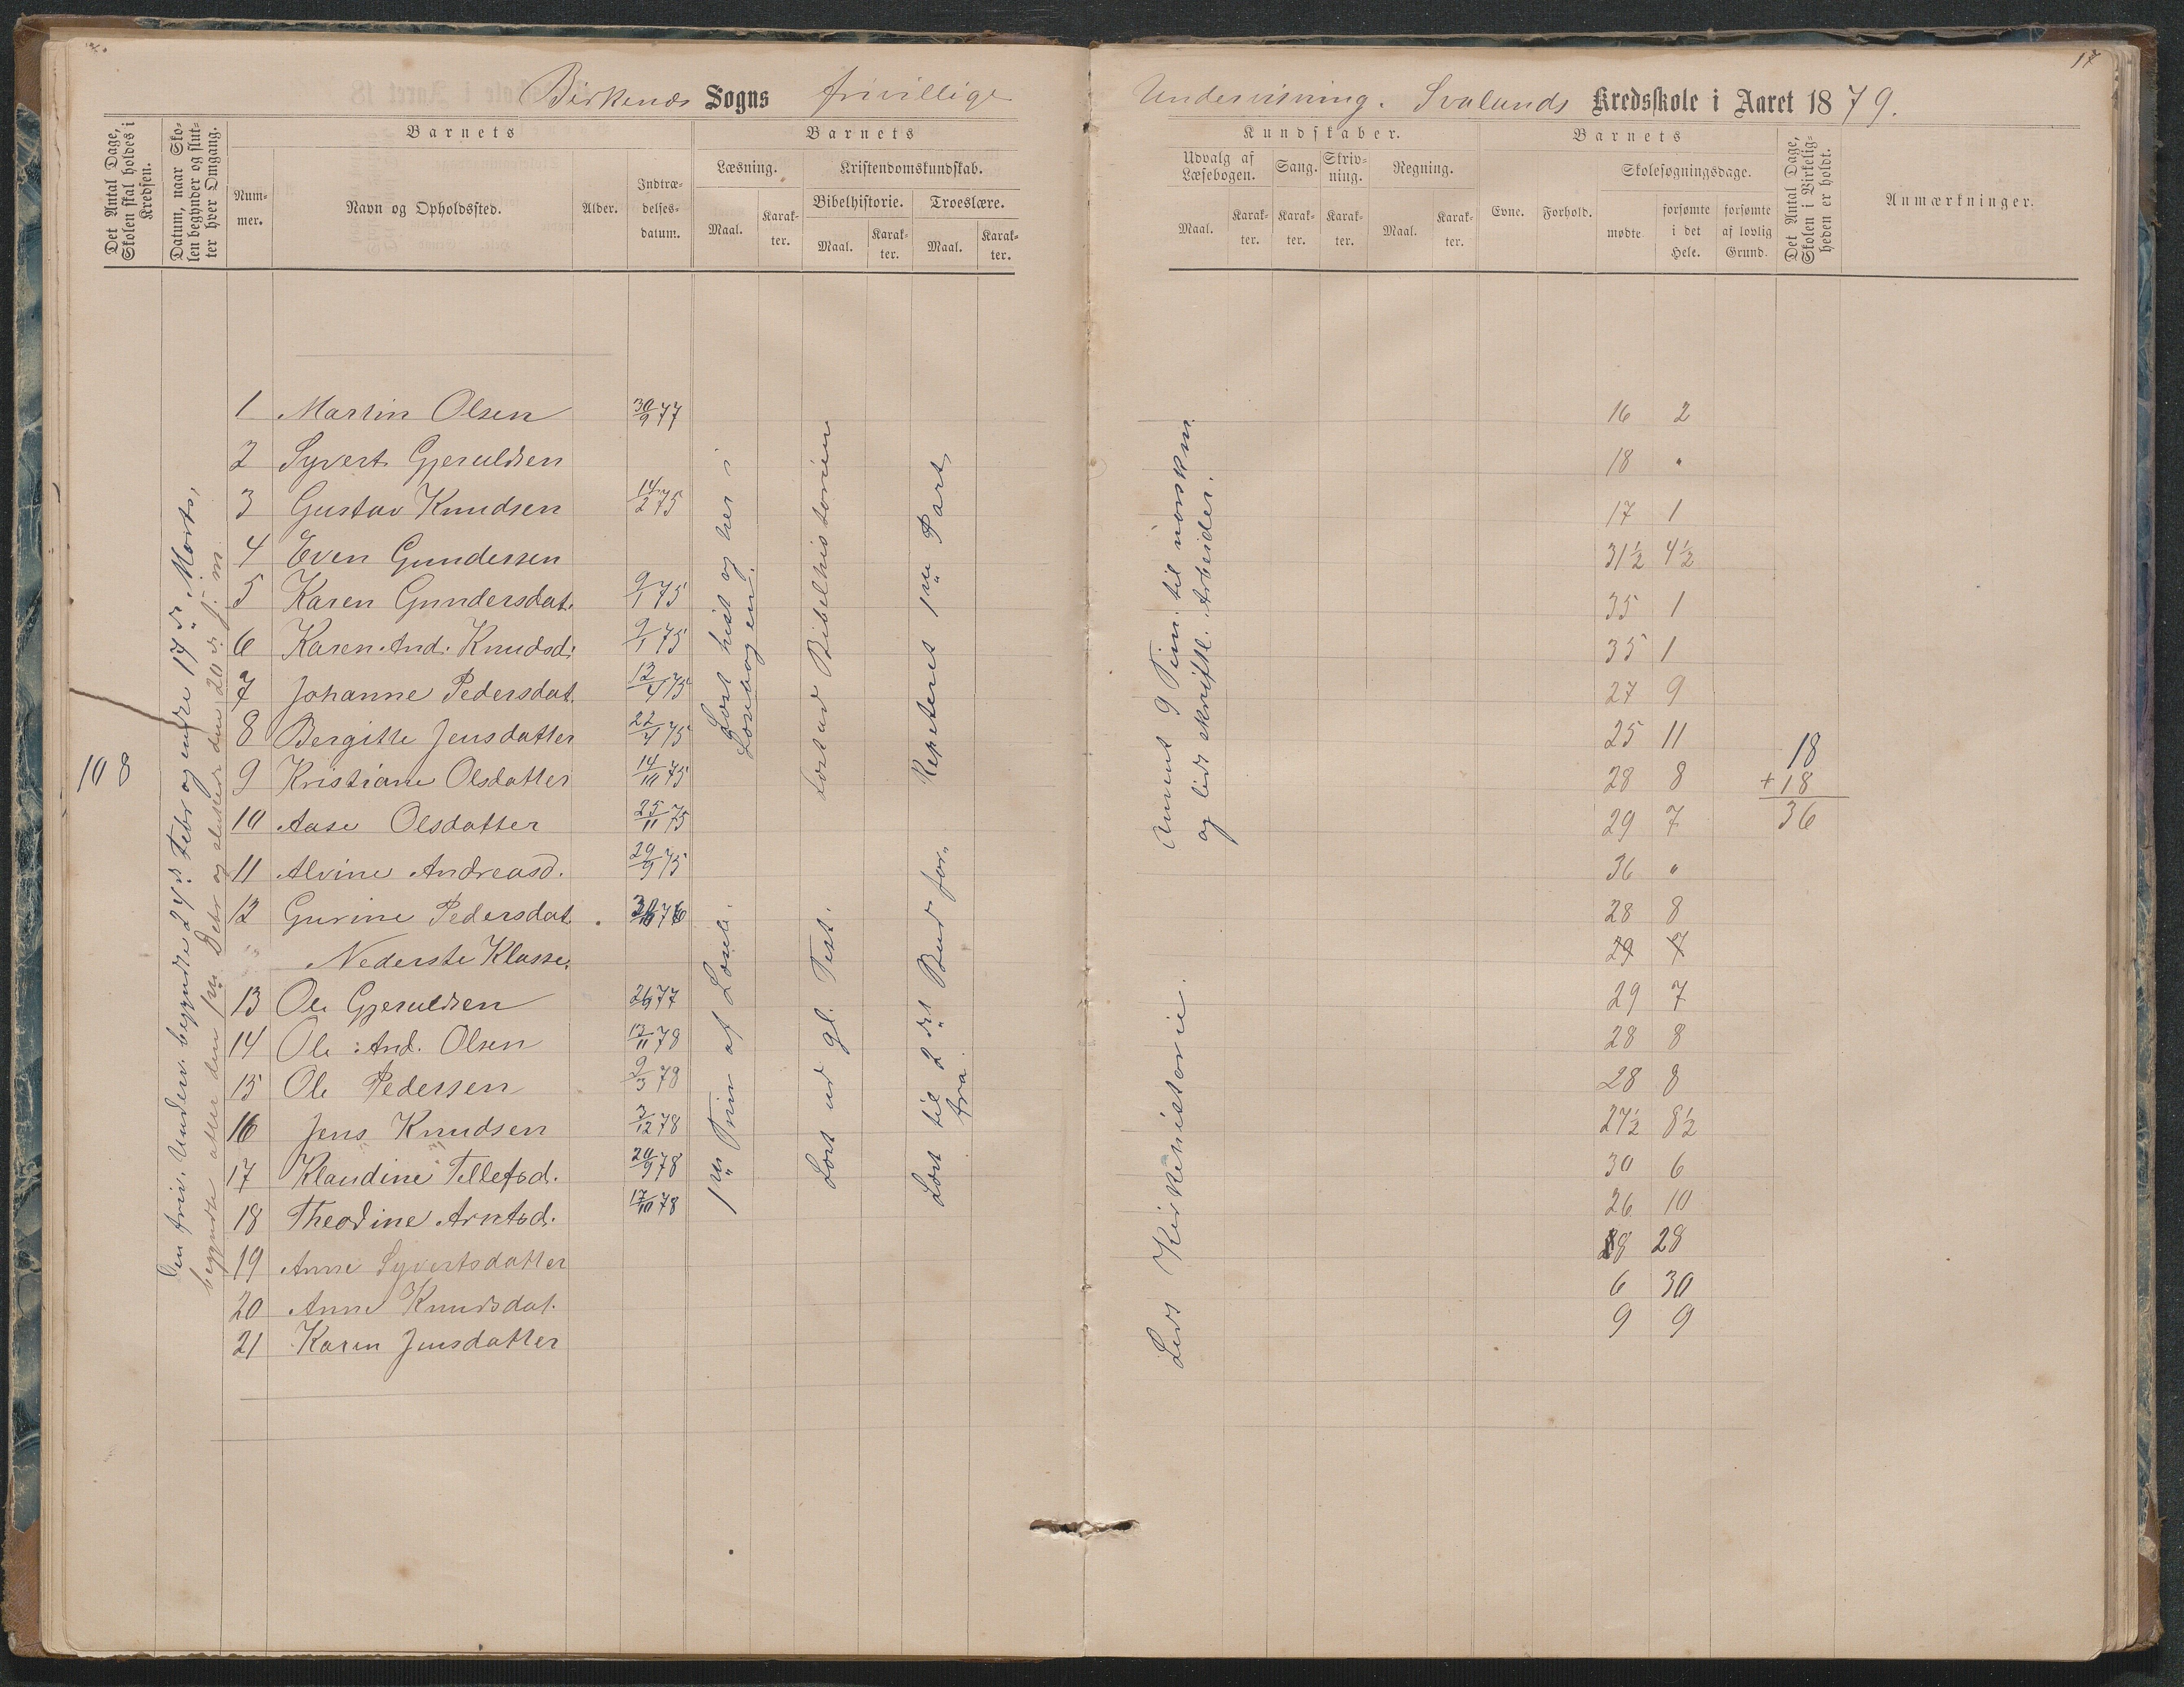 17
Birkenæs Sogns frivillige Undervisning. Svalands Kredsskole i Aaret 1879.
Det Antal Dage, Skolen skal holdes i Kredsen.
Datum, naar Skolen begynder og slutter hver Omgang.
Barnets
Nummer.
Navn og Opholdssted.
Alder.
Indtrædelsesdatum.
Barnets
Læsning.
Maal.
Karakter.
Kristendomskundskab.
Bibelhistorie.
Maal.
Karakter.
Troeslære.
Maal.
Karakter.
Kundskaber.
Udvalg af Læsebogen.
Maal.
Karakter.
Sang.
Karakter.
Skrivning.
Karakter.
Regning.
Maal.
Karakter.
Barnets
Evne.
Forhold.
Skolesøgningsdage.
mødte
forsømte i det Hele.
forsømte af lovlig Grund.
Det Antal Dage, Skolen i Virkeligheden er holdt.
Anmærkninger.
108
Den friv. Underv. begyndte 24d Febr og endte 17d Marts,
begyndte atter den 1ste Debr og sluttede den 20d s. m.
1 Martin Olsen 30/9 77 16 2
2 Syvert Gjeruldsen 18 "
3 Gustav Knudsen 14/2 75 17 1
4 Even Gundersen 31½ 4½
5 Karen Gundersdat. 9/1 75 35 1
6 Karen And. Knudsd: 9/1 75 35 1
7 Johanne Pedersdat. 12/4 75 27 9
8 Bergitte Jensdatter 22/4 75 25 11
9 Kristiane Olsdatter 14/10 75 28 8
10 Aase Olsdatter 25/11 75 29 7
11 Alvine Andreasd. 29/9 75 36 "
12 Gurine Pedersdat. 76 28 8
" Nederste Klasse. 29 7
13 Ole Gjeruldsen 77 29 7
14 Ole And. Olsen 13/11 78 28 8
15 Ole Pedersen 9/3 78 28 8
16 Jens Knudsen 3/12 78 27½ 8½
17 Klaudine Tellefsd. 20/9 78 30 6
18 Theodine Arntsd. 17/10 78 26 10
19 Anne Syvertsdatter 8 28
20 Anne Knudsdat. 6 30
21 Karen Jensdatter 9 9
Læst hist og her i
Læsebogen.
Læst ud Bibelhistorien
Repeteret 1ste Part
1ste Trin af Læseb.
Læst ud gl. Test.
Læst til 2det Bud for"
fra.
og lidt skriftl. Arbeider.
Læst Kirkehistorie.
18
+ 18
36